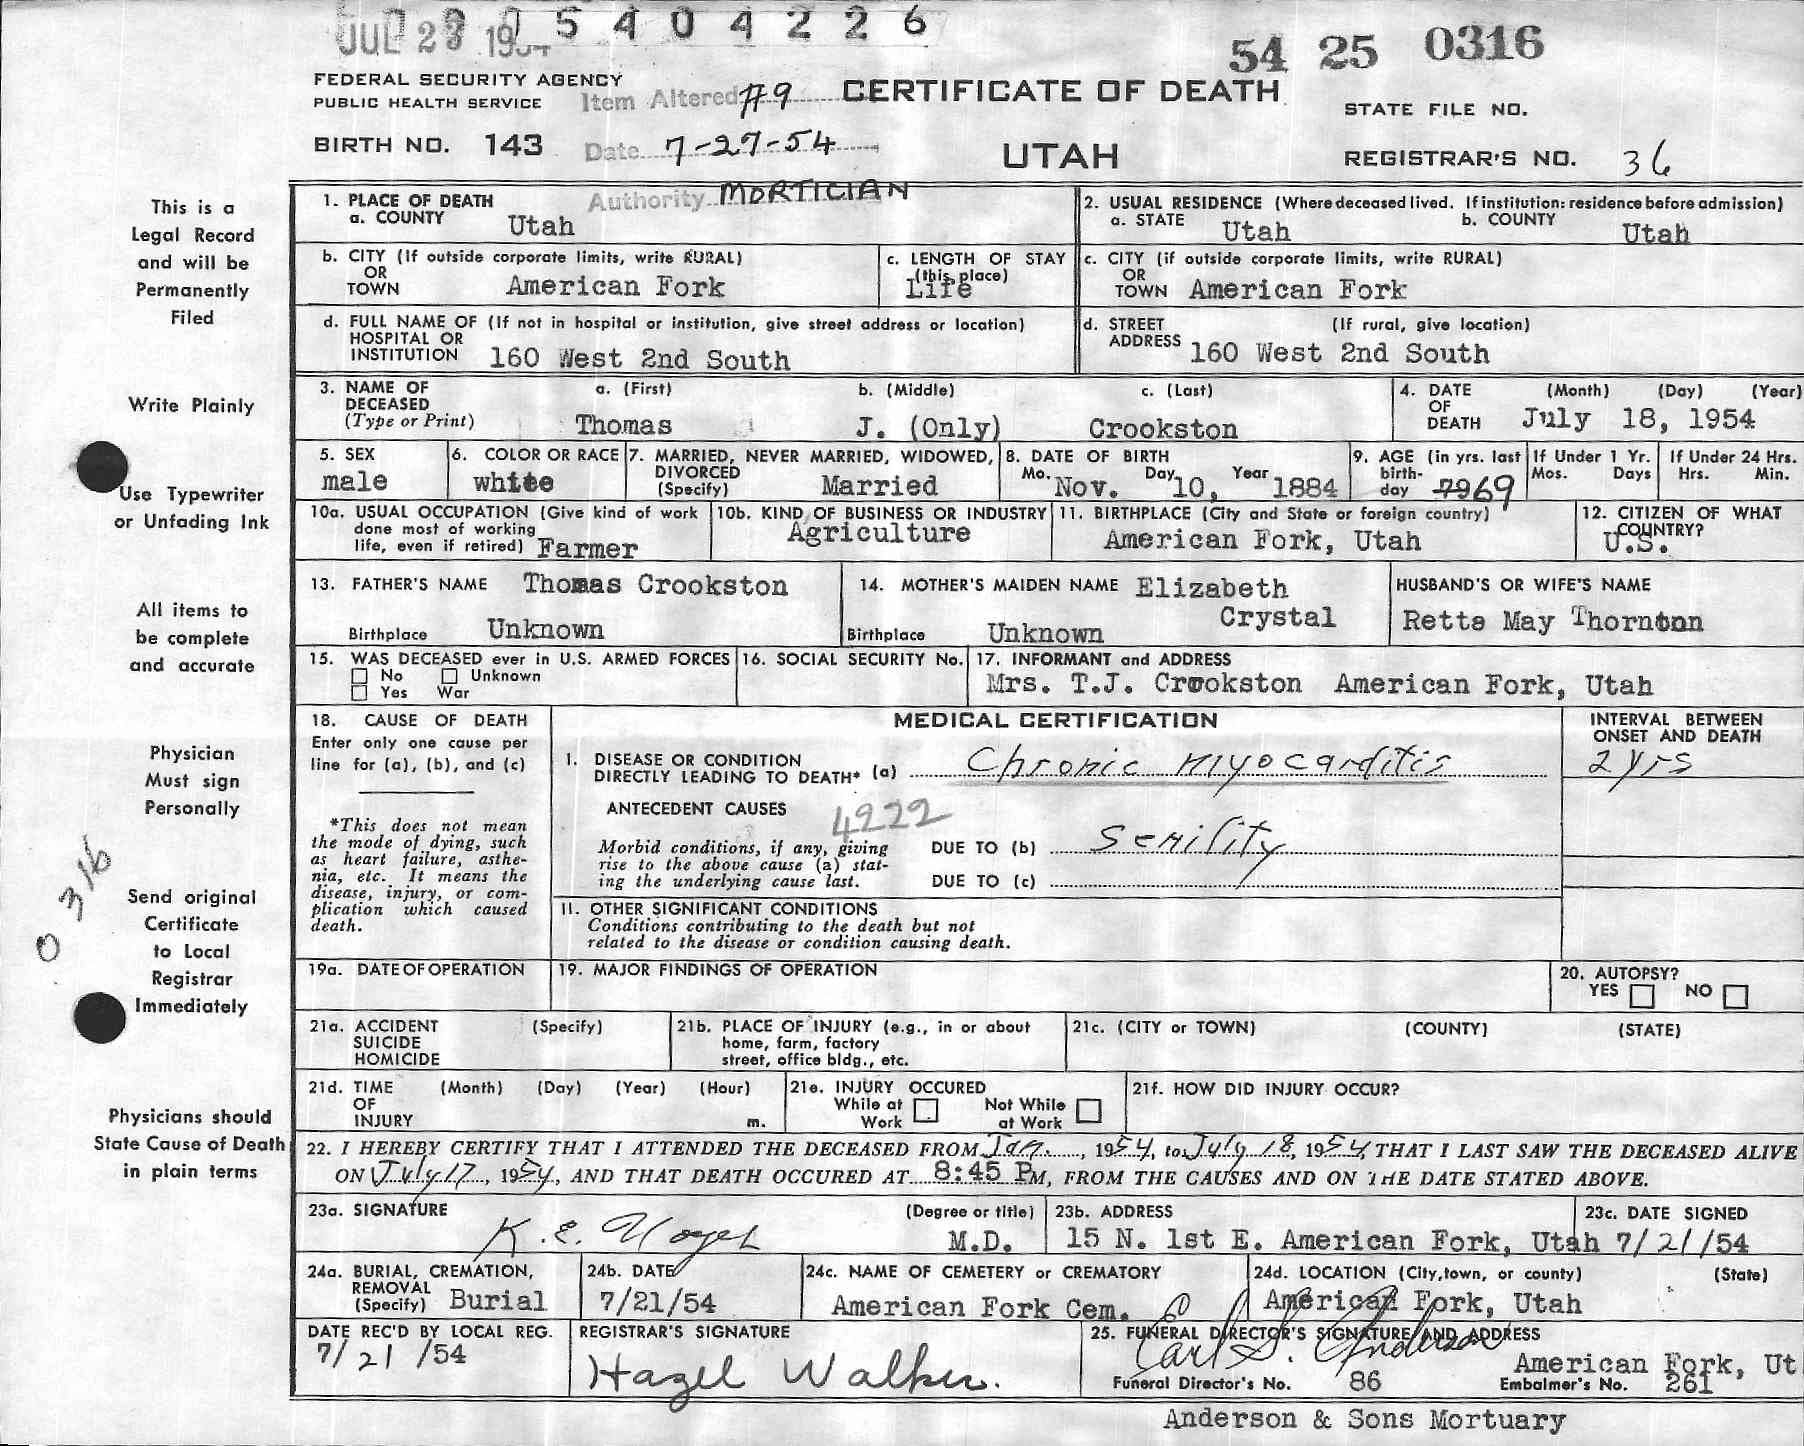 JUL 23 1954 0 5 4 0 4 2 2 6
54 25 0316
FEDERAL SECURITY AGENCY
PUBLIC HEALTH SERVICE
Item Altered #9
CERTIFICATE OF DEATH
STATE FILE NO.
BIRTH NO. 143
Date 7-27-54
UTAH
REGISTRAR'S NO. 36
Authority MORTICIAN
This is a
Legal Record
and will be
Permanently
Filed
Write Plainly
Use Typewriter
or Unfading Ink
All items to
be complete
and accurate
Physician
Must sign
Personally
0316
Send original
Certificate
to Local
Registrar
Immediately
Physicians should
State Cause of Death
in plain terms
1. PLACE OF DEATH
a. COUNTY Utah
2. USUAL RESIDENCE (Where deceased lived. If institution: residence before admission)
a. STATE Utah b. COUNTY Utah
b. CITY (If outside corporate limits, write RURAL)
OR
TOWN American Fork
c. LENGTH OF STAY
(this place)
Life
c. CITY (if outside corporate limits, write RURAL)
OR
TOWN American Fork
d. FULL NAME OF (If not in hospital or institution, give street address or location)
HOSPITAL OR
INSTITUTION 160 West 2nd South
d. STREET (If rural, give location)
ADDRESS 160 West 2nd South
3. NAME OF a. (First) b. (Middle) c. (Last)
DECEASED
(Type or Print) Thomas J. (Only) Crookston
4. DATE (Month) (Day) (Year)
OF
DEATH July 18, 1954
5. SEX
male
6. COLOR OR RACE
white
7. MARRIED, NEVER MARRIED, WIDOWED,
DIVORCED
(Specify) Married
8. DATE OF BIRTH
Mo. Nov. Day 10, Year 1884
9. AGE (in yrs. last
birth-
day 79 69
If Under 1 Yr.
Mos. Days
If Under 24 Hrs.
Hrs. Min.
10a. USUAL OCCUPATION (Give kind of work
done most of working
life, even if retired) Farmer
10b. KIND OF BUSINESS OR INDUSTRY
Agriculture
11. BIRTHPLACE (City and State or foreign country)
American Fork, Utah
12. CITIZEN OF WHAT
COUNTRY?
U.S.
13. FATHER'S NAME Thomas Crookston
Birthplace Unknown
14. MOTHER'S MAIDEN NAME Elizabeth
Crystal
Birthplace Unknown
HUSBAND'S OR WIFE'S NAME
Retta May Thornton
15. WAS DECEASED ever in U.S. ARMED FORCES
No Unknown
Yes War
16. SOCIAL SECURITY No.
17. INFORMANT and ADDRESS
Mrs. T.J. Crookston American Fork, Utah
18. CAUSE OF DEATH
Enter only one cause per
line for (a), (b), and (c)
*This does not mean
the mode of dying, such
as heart failure, asthe-
nia, etc. It means the
disease, injury, or com-
plication which caused
death.
MEDICAL CERTIFICATION
INTERVAL BETWEEN
ONSET AND DEATH
I. DISEASE OR CONDITION
DIRECTLY LEADING TO DEATH* (a) Chronic myocarditis 2 yrs
ANTECEDENT CAUSES
4222
Morbid conditions, if any, giving
rise to the above cause (a) stat-
ing the underlying cause last.
DUE TO (b) Senility
DUE TO (c)
II. OTHER SIGNIFICANT CONDITIONS
Conditions contributing to the death but not
related to the disease or condition causing death.
19a. DATE OF OPERATION
19. MAJOR FINDINGS OF OPERATION
20. AUTOPSY?
YES NO
21a. ACCIDENT (Specify)
SUICIDE
HOMICIDE
21b. PLACE OF INJURY (e.g., in or about
home, farm, factory
street, office bldg., etc.
21c. (CITY or TOWN) (COUNTY) (STATE)
21d. TIME (Month) (Day) (Year) (Hour)
OF
INJURY m.
21e. INJURY OCCURED
While at Not While
Work at Work
21f. HOW DID INJURY OCCUR?
22. I HEREBY CERTIFY THAT I ATTENDED THE DECEASED FROM Jan., 1954, to July 18, 1954, THAT I LAST SAW THE DECEASED ALIVE
ON July 17, 1954, AND THAT DEATH OCCURED AT 8:45 PM, FROM THE CAUSES AND ON THE DATE STATED ABOVE.
23a. SIGNATURE (Degree or title)
K. E. M.D.
23b. ADDRESS
15 N. 1st E. American Fork, Utah
23c. DATE SIGNED
7/21/54
24a. BURIAL, CREMATION,
REMOVAL
(Specify) Burial
24b. DATE
7/21/54
24c. NAME OF CEMETERY or CREMATORY
American Fork Cem.
24d. LOCATION (City, town, or county) (State)
American Fork, Utah
DATE REC'D BY LOCAL REG.
7/21/54
REGISTRAR'S SIGNATURE
Hazel Walker.
25. FUNERAL DIRECTOR'S SIGNATURE AND ADDRESS
Carl S. Anderson
American Fork, Ut
Funeral Director's No. 86 Embalmer's No. 261
Anderson & Sons Mortuary